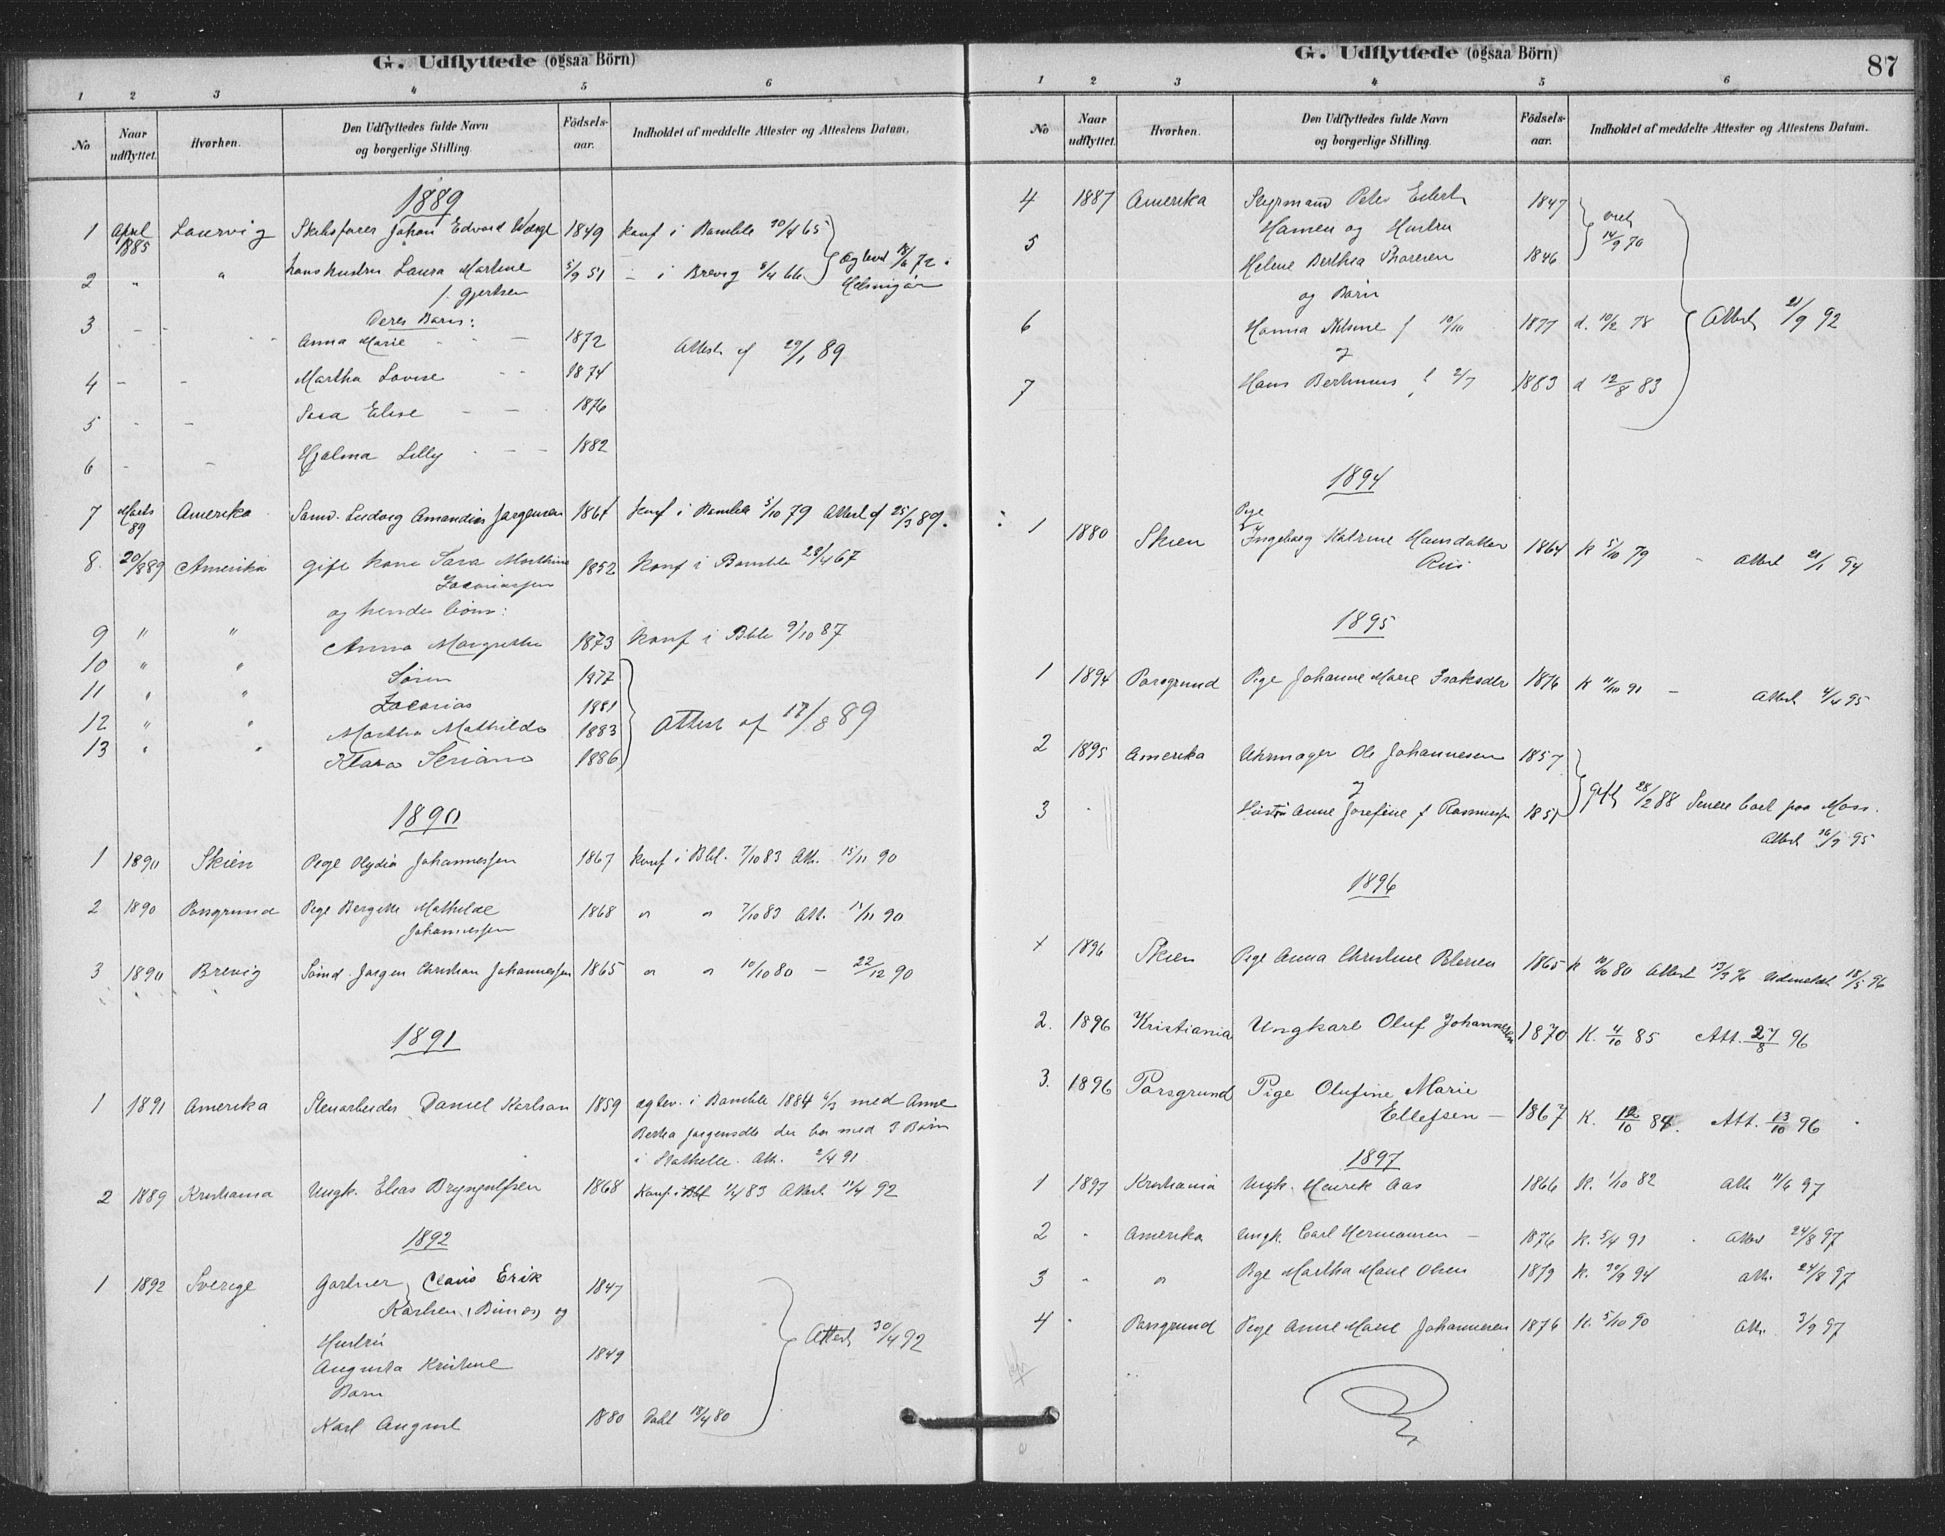 G. Udflyttede (ogsaa Börn)
1 2 3 4 5 6
No Naar udflyttet. Hvorhen. Den Udflyttedes fulde Navn og borgerlige Stilling. Födsels-aar. Indholdet af meddelte Attester og Attestens Datum.
1889
1 April 1885 Laurvig Skibsfører Johan Edvard 1849 konf i Bamble 30/4 65
2 " " hans hustru Laura Martine 5/9 51 – i Brevig 8/4 66 Helsingør
f. Gjertsen
Deres Børn:
3 – – Anna Marie 1872 Attest af 29/1 89
4 – – Martha Lovise 1874
5 – – Sara Elise 1876
6 – – Hjalma Lilly 1882
7 Marts 89 Amerika Sømd. Ludvig Amandius Jørgensen 1864 konf i Bamble 5/10 79 Attest af 25/3 89.
8. 20/8 89 Amerika gift kone Sara Marthine 1852 konf i Bamble 28/4 67
Zacariassen
og hendes børn:
9 " " Anna Margrethe 1873 konf i Bble 9/10 87
10 " " Søren 1877
11 " " Zacarias 1881
12 " " Martha Mathilde 1883 Attest af 17/8 89
13 " " Klara Seriane 1886
1890
1 1890 Skien Pige Olydia Johannessen 1867 konf i Bbl. 7/10 83 Att. 15/11 90
2 1890 Porsgrund Pige Bergitte Mathilde 1868 " " 7/10 83 Att. 15/11 90
Johannessen
3 1890 Brevig Sømd. Jørgen Christian Johannessen 1865 " " 10/10 80 – 22/12 90
1891
1 1891 Amerika Stenarbeider Daniel Karlson 1859 ægtev. i Bamble 1884 med Anne
Berthe Jørgensdtr der bor med 3 Børn
i Stathelle. Att. 2/4 91.
2 1889 Kristiania Ungk. Elias Bryngulfsen 1868 Konf. i Bbl 83 Attest 11/4 92
1892
1 1892 Sverige Gartner Claus Erik 1847
Karlsen, og
Hustru
Augusta Kristine 1849 Attest 30/4 92
Barn
Karl August 1880 Døbt 18/4 80
G. Udflyttede (ogsaa Börn) 87
1 2 3 4 5 6
No Naar udflyttet. Hvorhen. Den Udflyttedes fulde Navn og borgerlige Stilling. Födsels-aar. Indholdet af meddelte Attester og Attestens Datum.
4 1887 Amerika Styrmand Peter Eilert 1847 viet
Hansen og Hustru 14/9 70
5 Helene Berthea Thoresen 1846
og Børn
6 Hanna f 10/10 1877 d. 10/2 78 Attest 21/9 92
og
7 Hans f 2/7 1883 d 12/8 83
1894
1 1880 Skien Pige Ingeborg Katrine Hansdatter 1864 K 5/10 79 – Attest 21/1 94
1895
1 1894 Porsgrund Pige Johanne Marie Isaksdtr 1876 K 11/10 91 – Attest 4/4 95
2 1895 Amerika Uhrmager Ole Johannesen 1857
og gift 28/2 88 Senere boet paa Moss.
3 " Hustru Anne Josefine f Rasmussen 1851
Attest 16/9 95
1896
+ 1896 Skien Pige Anna Christine Petersen 1865 K 10/10 80 Attest 13/3 96 Udmeldt 18/5 96
2. 1896 Kristiania Ungkarl Oluf Johannesen 1870 K. 4/10 85 Att. 27/8 96
3. 1896 Porsgrund Pige Olufine Marie
Ellefsen – 1867 K. 12/10 84. Att. 13/10 96
1897
1 1897 Kristiania Ungk. Henrik Aas 1866 K. 1/10 82 Att. 11/6 97
2 " Amerika Ungk. Carl Hermansen – 1876 K. 5/4 91 Attest 24/8 97
3 " " Pige Martha Marie Olsen 1879 K. 30/9 94 Att. 24/8 97
4 " Porsgrund Pige Anne Marie Johannesen 1876 K. 5/10 90 Att. 3/9 97